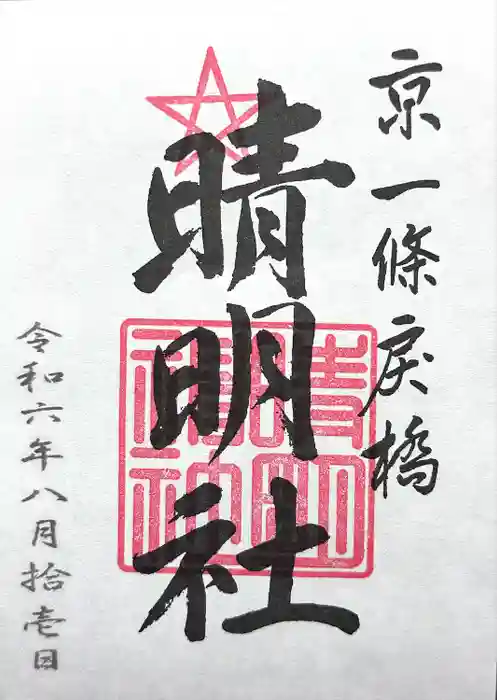 京一條戻橋
晴明社
令和六年八月拾壱日
晴明神社